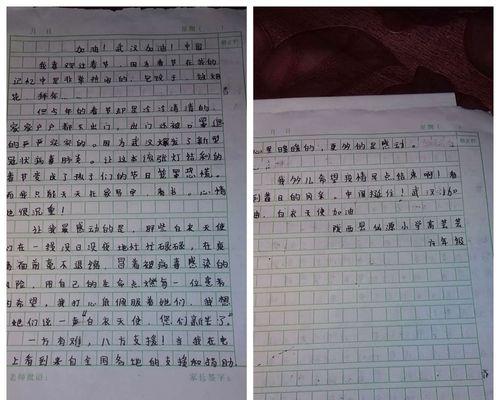 月 日 星期（ ）
加油！武汉加油！中国
我喜欢过春节，因为春节在我的
记忆中是非常热闹的，包饺子 放烟
花 拜年……
但今年的春节却是冷冷清清的，
家家户户都不出门，出门还被口罩遮
的严严实实的。因为武汉爆发了新型
冠状病毒肺炎。让这本该张灯结彩的
春节变成了孩子们的节日笼罩恐慌。
而我只能天天在家写字 看书。心情
也很沉重！
让我最感动的是，那些白衣天使
们在一线没日没夜地忙忙碌碌，在病
毒面前毫不退缩，冒着被病毒感染的
风险，用自己的生命点燃每一位患者
的希望，我打心底佩服着她们，我想
她们说一声“白衣天使，您们辛苦了。”
一方有难，八方支援！当我在电
视上看到来自全国各地的支援和捐助
老师批语： 家长签字：
月 日 星期（ ）
心里暖暖的，更多的是感动。
我多么希望疫情早点结束啊！看
到昔日的风采。中国挺住！武汉加
油，白衣天使加油
陇西县仙源小学高芸芸
六年级